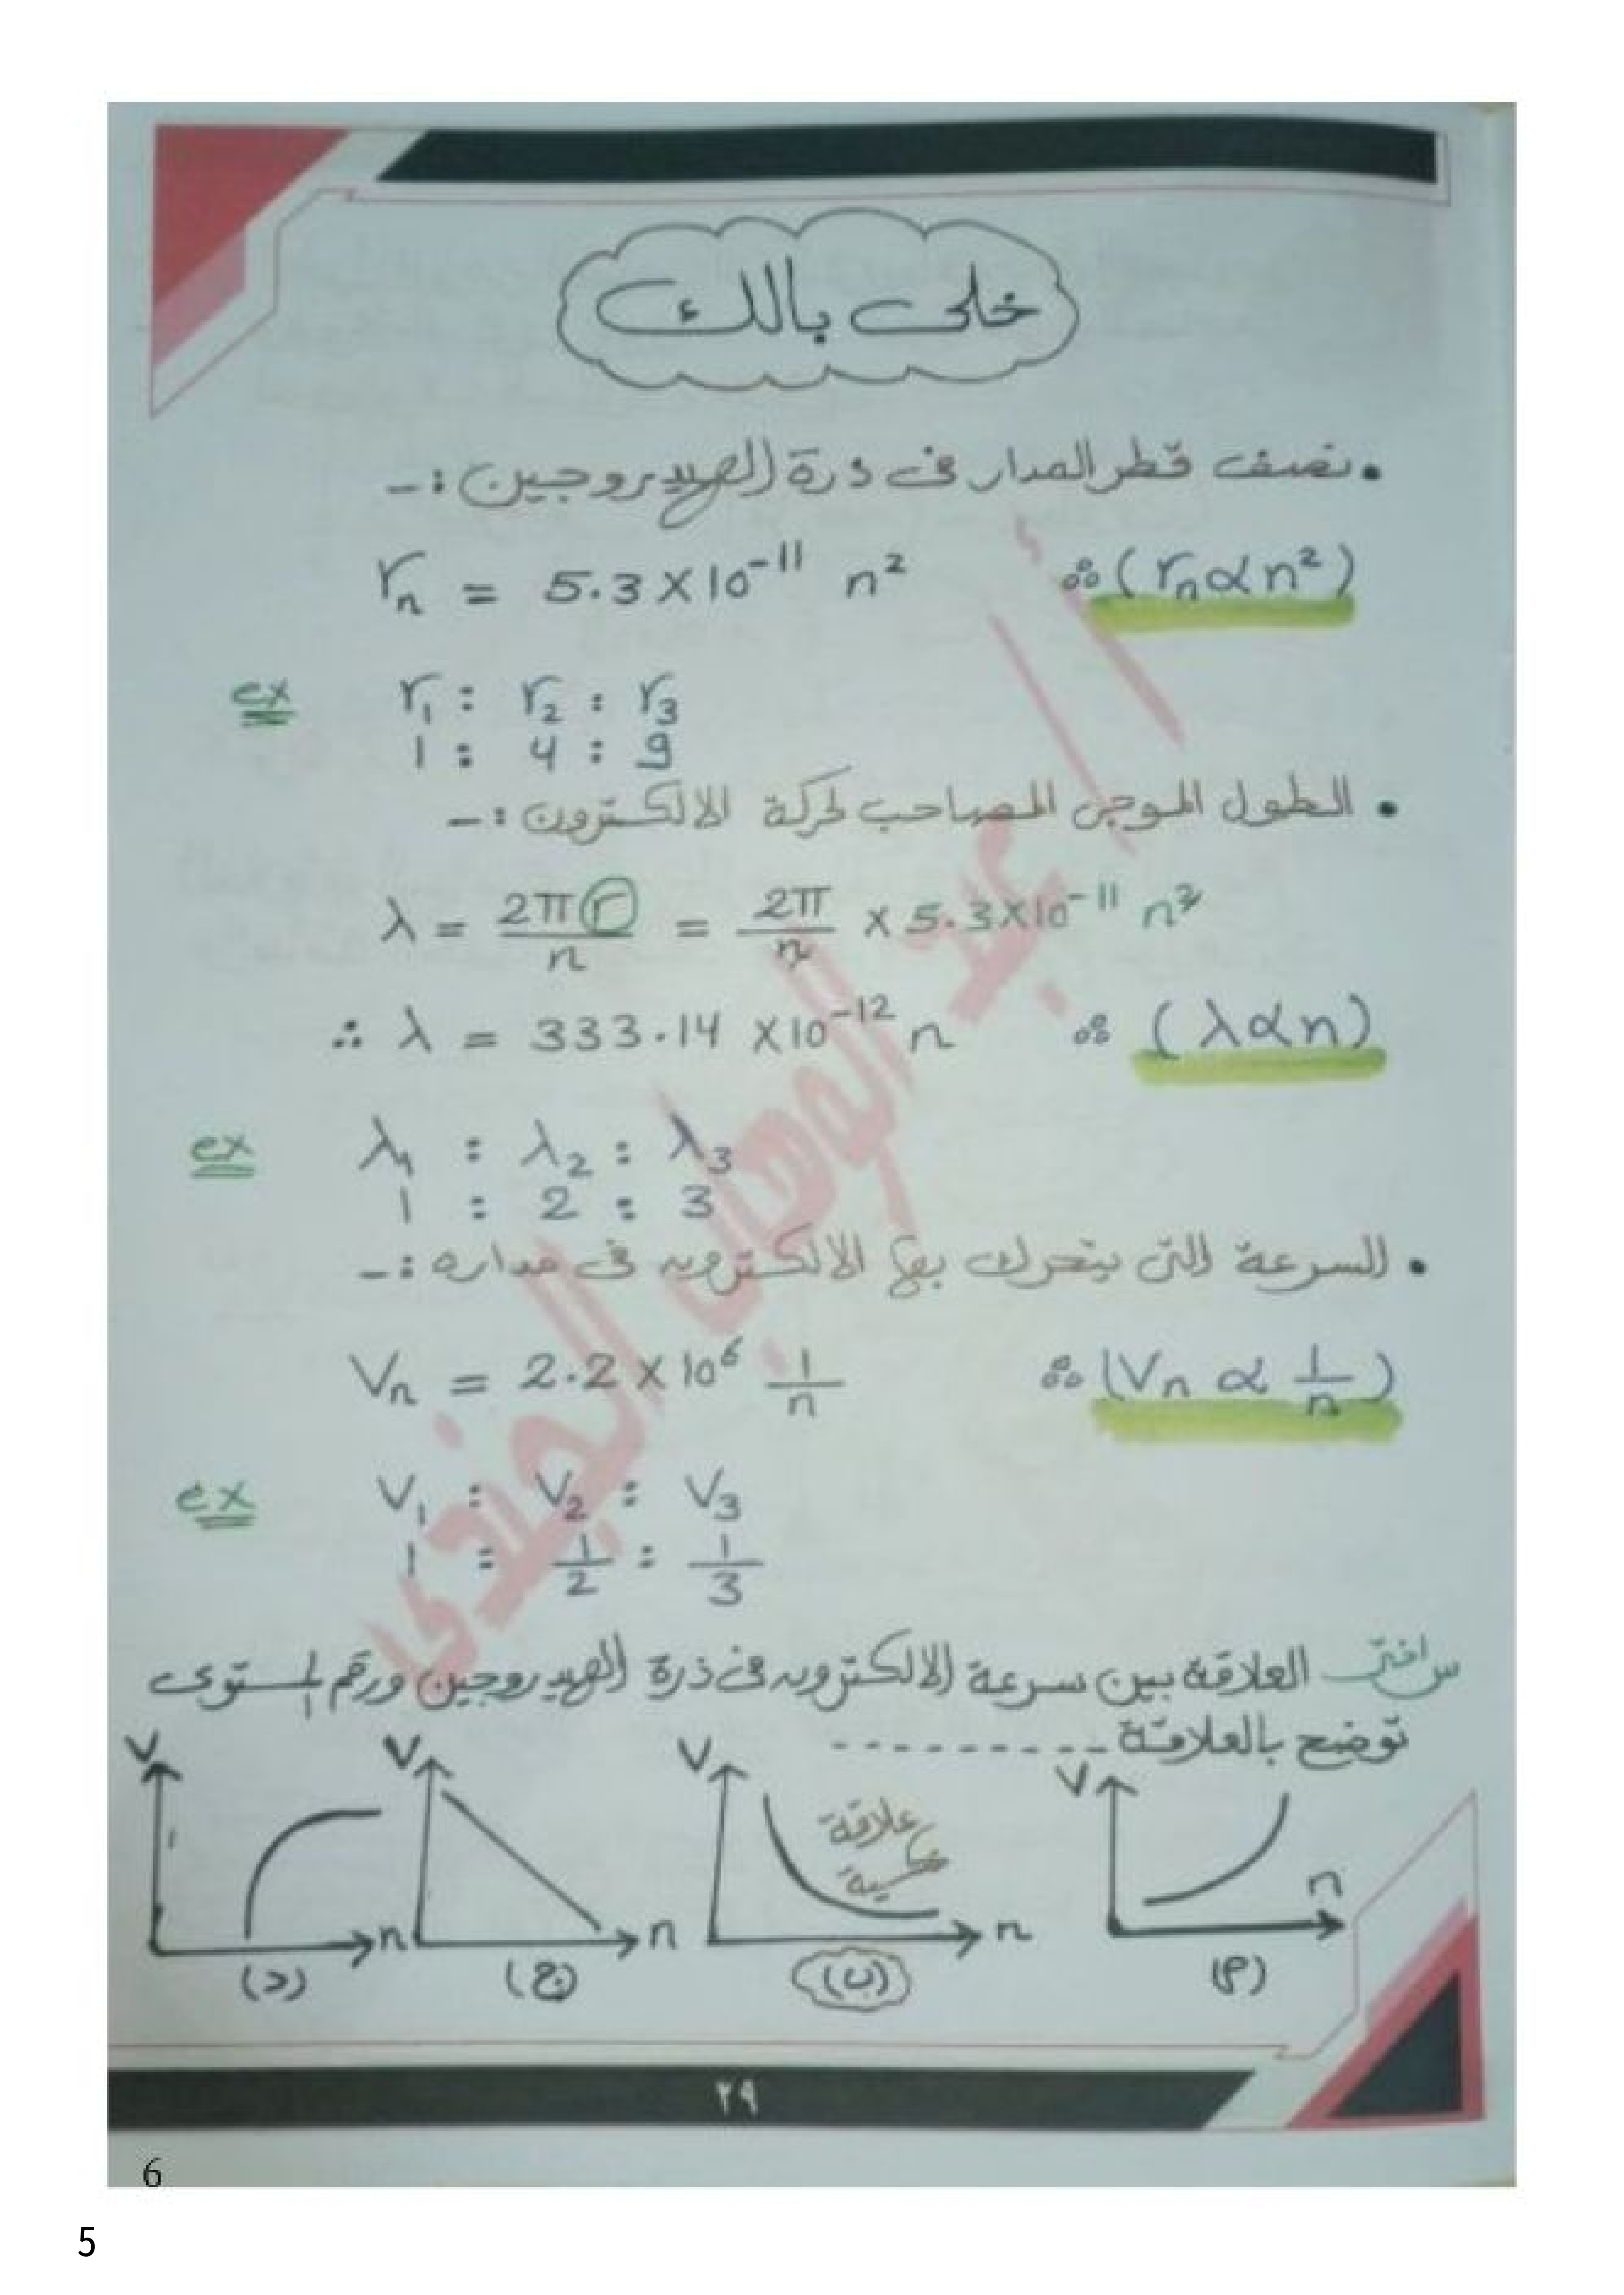 خلى بالك
• نصف قطر المدار فى ذرة الهيدروجين :-
rₙ = 5.3 X 10⁻¹¹ n² ∴ (rₙ ∝ n²)
ex r₁ : r₂ : r₃
1 : 4 : 9
• الطول الموجى المصاحب لحركة الالكترون :-
λ = 2πr/n = 2π/n x 5.3X10⁻¹¹ n²
∴ λ = 333.14 X10⁻¹² n ∴ (λ ∝ n)
ex λ₁ : λ₂ : λ₃
1 : 2 : 3
• السرعة التى يتحرك بها الالكترون فى مداره :-
Vₙ = 2.2 X 10⁶ 1/n ∴ (Vₙ ∝ 1/n)
ex V₁ : V₂ : V₃
1 : 1/2 : 1/3
س اختر العلاقة بين سرعة الالكترون فى ذرة الهيدروجين ورقم المستوى
توضح بالعلاقة ---------
V V V V
علاقة
عكسية
n n n n
(م) (ب) (ج) (د)
أ / عبد الوهاب الجندى
٢٩
6
5